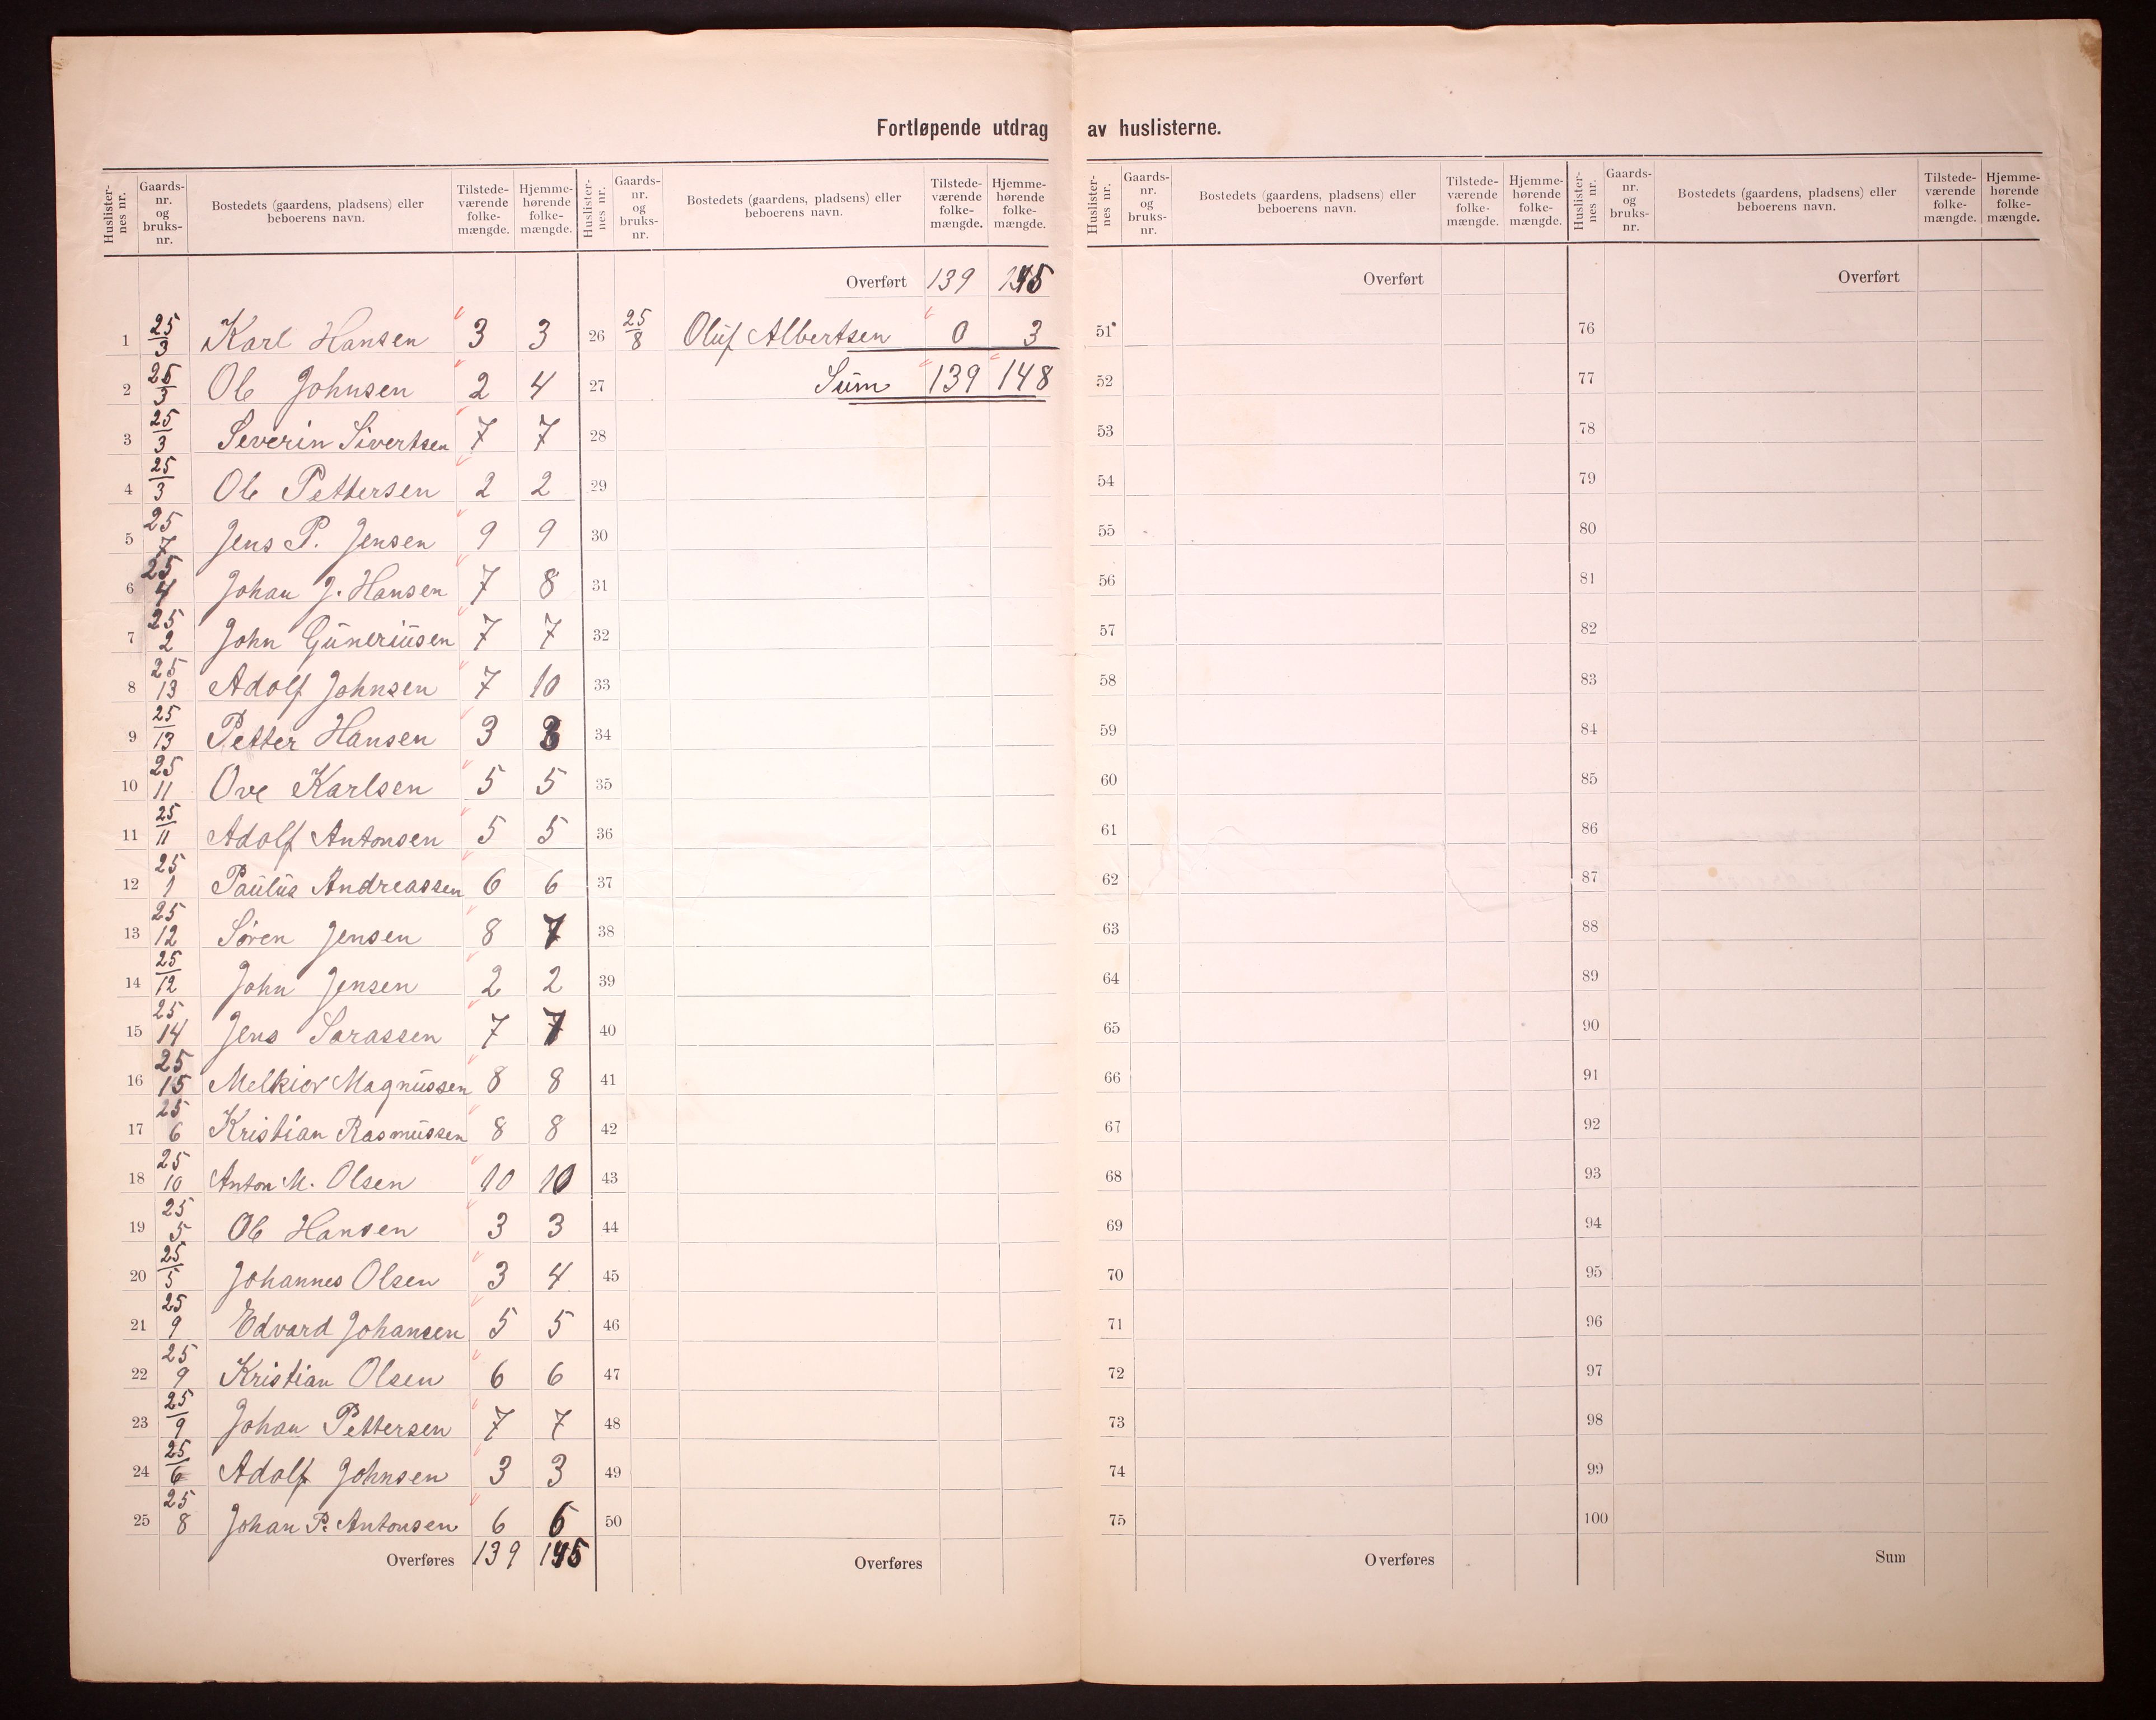 Fortløpende utdrag av huslisterne.
Huslister-nes nr. | Gaards-nr. og bruks-nr. | Bostedets (gaardens, pladsens) eller beboerens navn. | Tilstede-værende folke-mængde. | Hjemme-hørende folke-mængde.
1 25/3 Karl Hansen 3 3
2 25/3 Ole Johnsen 2 4
3 25/3 Severin Sivertsen 7 7
4 25/3 Ole Pettersen 2 2
5 25/7 Jens P. Jensen 9 9
6 25/4 Johan J. Hansen 7 8
7 25/2 John Guneriusen 7 7
8 25/13 Adolf Johnsen 7 10
9 25/13 Petter Hansen 3 3
10 25/11 Ove Karlsen 5 5
11 25/11 Adolf Antonsen 5 5
12 25/1 Paulus Andreassen 6 6
13 25/12 Søren Jensen 8 7
14 25/12 John Jensen 2 2
15 25/14 Jens Sarassen 7 7
16 25/15 Melkior Magnussen 8 8
17 25/6 Kristian Rasmussen 8 8
18 25/10 Anton M. Olsen 10 10
19 25/5 Ole Hansen 3 3
20 25/5 Johannes Olsen 3 4
21 25/9 Edvard Johansen 5 5
22 25/9 Kristian Olsen 6 6
23 25/9 Johan Pettersen 7 7
24 25/6 Adolf Johnsen 3 3
25 25/8 Johan P. Antonsen 6 6
Overføres 139 145
Huslister-nes nr. | Gaards-nr. og bruks-nr. | Bostedets (gaardens, pladsens) eller beboerens navn. | Tilstede-værende folke-mængde. | Hjemme-hørende folke-mængde.
Overført 139 145
26 25/8 Oluf Albertsen 0 3
27 Sum 139 148
28
29
30
31
32
33
34
35
36
37
38
39
40
41
42
43
44
45
46
47
48
49
50
Overføres
Huslister-nes nr. | Gaards-nr. og bruks-nr. | Bostedets (gaardens, pladsens) eller beboerens navn. | Tilstede-værende folke-mængde. | Hjemme-hørende folke-mængde.
Overført
51
52
53
54
55
56
57
58
59
60
61
62
63
64
65
66
67
68
69
70
71
72
73
74
75
Overføres
Huslister-nes nr. | Gaards-nr. og bruks-nr. | Bostedets (gaardens, pladsens) eller beboerens navn. | Tilstede-værende folke-mængde. | Hjemme-hørende folke-mængde.
Overført
76
77
78
79
80
81
82
83
84
85
86
87
88
89
90
91
92
93
94
95
96
97
98
99
100
Sum